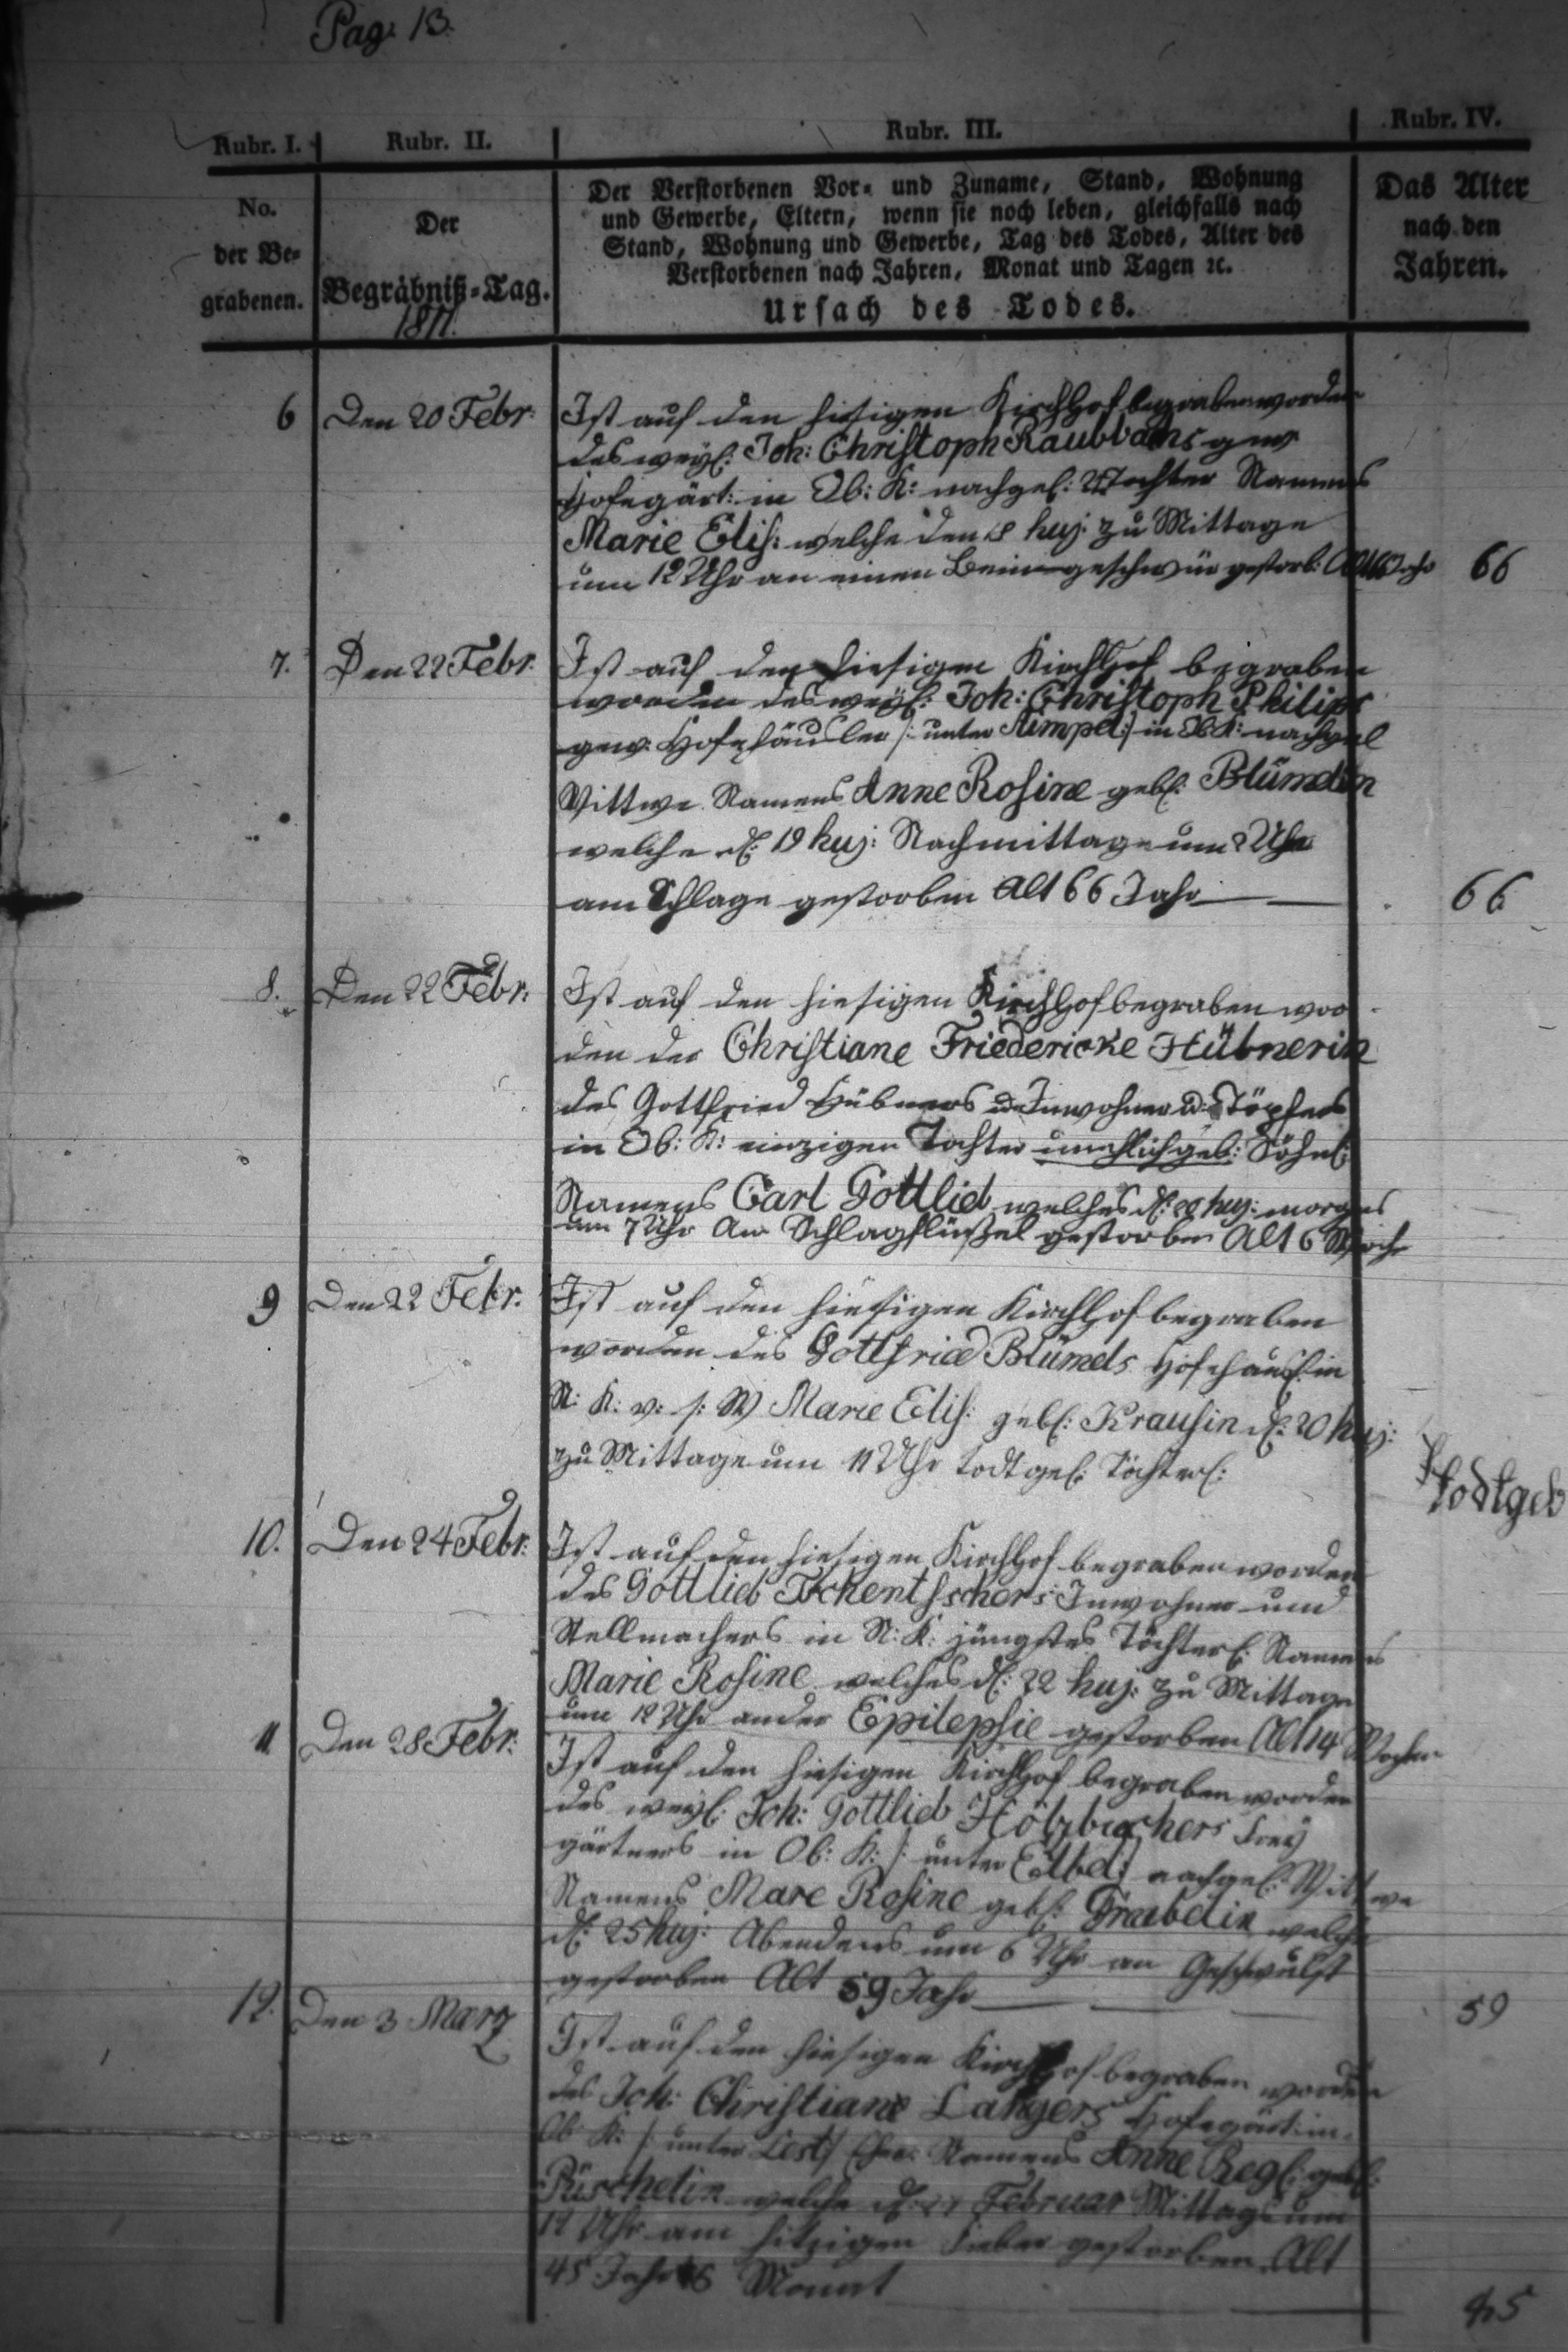 Pag: 13.
Rubr. I. Rubr. II. Rubr. III. Rubr. IV.
No. der Be- grabenen.
Der Begräbniß-Tag.
1811.
Der Verstorbenen Vor- und Zuname, Stand, Wohnung
und Gewerbe, Eltern, wenn sie noch leben, gleichfalls nach
Stand, Wohnung und Gewerbe, Tag des Todes, Alter des
Verstorbenen nach Jahren, Monat und Tagen ꝛc.
Ursach des Todes.
Das Alter nach den Jahren.
6 Den 20 Febr: Ist auf den hiesigen Kirchhof begraben worden
des weyl: Joh: Christoph gew
Hofegärt: in Ob: K: nachgel: Tochter Namens
Marie Elis: welche den 18 huj: zu Mittage
um 12 Uhr an einem Beingeschwür gestorb: Alt 66 Jahr 66
7. Den 22 Febr. Ist auf den hiesigen Kirchhof begraben
worden des weyl: Joh: Christoph Philips
gew: Hofehäusler /: unter :/ in Ob K: nachgel
Wittwe Namens Anne Rosine gebl: Blümelin
welche d: 19 huj: Nachmittage um 2 Uhr
am Schlage gestorben Alt 66 Jahr 66
8. Den 22 Febr: Ist auf den hiesigen Kirchhof begraben wor
den der Christiane Friedericke Hübnerin
des Gottfried Hübners Inwohner u: Töpfers
in Ob: K: einzigen Tochter unehlich geb: Söhnl:
Namens Carl Gottlieb welches d: 20 huj: morgens
um 7 Uhr am Schlagflüßel gestorben Alt 6 Woch
9 Den 22 Febr. Ist auf den hiesigen Kirchhof begraben
worden des Gottfried Blümels Hofehäusl: in
N: K: v: s: W Marie Elis: gebl: Krausin d: 20 huj:
zu Mittage um 11 Uhr todtgeb: Töchterl: Todtgeb
10. Den 24 Febr: Ist auf den hiesigen Kirchhof begraben worden
des Gottlieb Inwohner und
Stellmachers in N: K: jüngstes Töchterl: Namens
Marie Rosine welches d: 22 huj: zu Mittage
um 12 Uhr an der Epilepsie gestorben Alt 14 Wochen
11 Den 28 Febr: Ist auf den hiesigen Kirchhof begraben worden
des weyl: Joh: Gottlieb Holzbechers Frey
gärtners in Ob: K: /: unter nachgel: Wittwe
Namens Mare Rosine gebl: welche
d: 25 huj: Abends um 6 Uhr an Geschwulst
gestorben Alt 59 Jahr 59
12. Den 3 Marz Ist auf den hiesigen Kirchhof begraben worden
des Joh: Christiane Langers Hofegärt: in
Ob: K: /: unter Lest :/ Namens Anne Regl: gebl:
Püschelin welche d: Februar Mittags um
12 Uhr am hitzigen Fieber gestorben Alt
45 Jahr 6 Monat 45